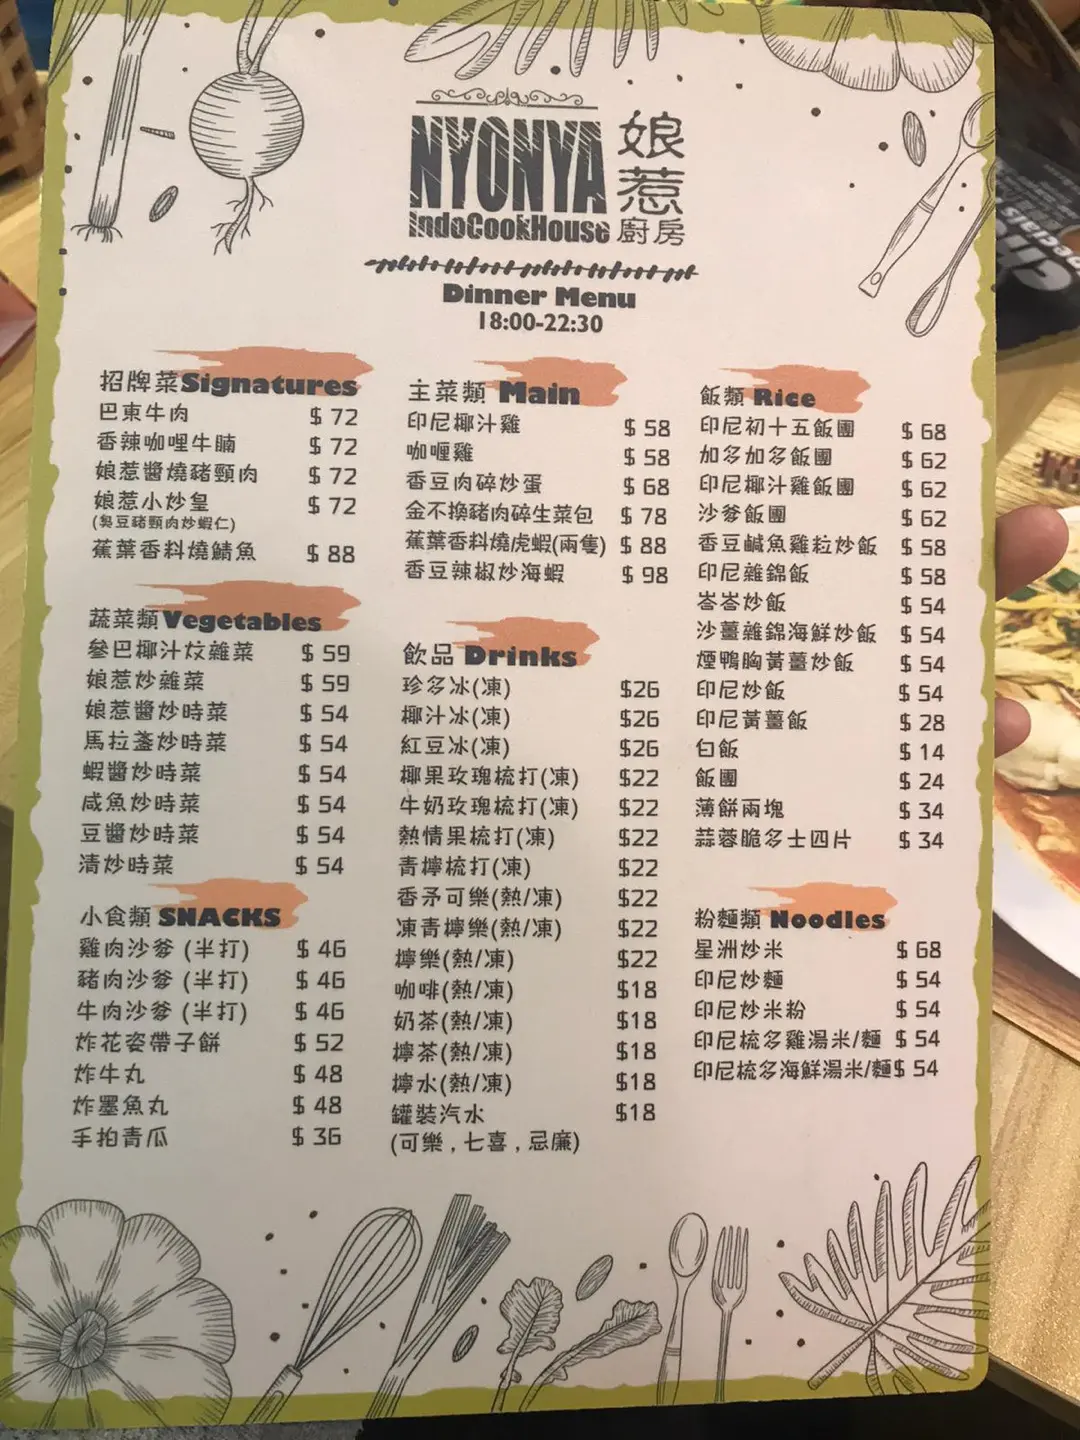 NYONYA
IndoCookHouse
娘惹
廚房
Dinner Menu
18:00-22:30
招牌菜 Signatures
巴東牛肉 $ 72
香辣咖哩牛腩 $ 72
娘惹醬燒豬頸肉 $ 72
娘惹小炒皇 $ 72
(臭豆豬頸肉炒蝦仁)
蕉葉香料燒鯖魚 $ 88
蔬菜類 Vegetables
參巴椰汁炆雜菜 $ 59
娘惹炒雜菜 $ 59
娘惹醬炒時菜 $ 54
馬拉盞炒時菜 $ 54
蝦醬炒時菜 $ 54
咸魚炒時菜 $ 54
豆醬炒時菜 $ 54
清炒時菜 $ 54
小食類 SNACKS
雞肉沙爹 (半打) $ 46
豬肉沙爹 (半打) $ 46
牛肉沙爹 (半打) $ 46
炸花姿帶子餅 $ 52
炸牛丸 $ 48
炸墨魚丸 $ 48
手拍青瓜 $ 36
主菜類 Main
印尼椰汁雞 $ 58
咖喱雞 $ 58
香豆肉碎炒蛋 $ 68
金不換豬肉碎生菜包 $ 78
蕉葉香料燒虎蝦(兩隻) $ 88
香豆辣椒炒海蝦 $ 98
飲品 Drinks
珍多冰(凍) $26
椰汁冰(凍) $26
紅豆冰(凍) $26
椰果玫瑰梳打(凍) $22
牛奶玫瑰梳打(凍) $22
熱情果梳打(凍) $22
青檸梳打(凍) $22
香茅可樂(熱/凍) $22
凍青檸樂(熱/凍) $22
檸樂(熱/凍) $22
咖啡(熱/凍) $18
奶茶(熱/凍) $18
檸茶(熱/凍) $18
檸水(熱/凍) $18
罐裝汽水 $18
(可樂,七喜,忌廉)
飯類 Rice
印尼初十五飯團 $ 68
加多加多飯團 $ 62
印尼椰汁雞飯團 $ 62
沙爹飯團 $ 62
香豆鹹魚雞粒炒飯 $ 58
印尼雜錦飯 $ 58
峇峇炒飯 $ 54
沙薑雜錦海鮮炒飯 $ 54
煙鴨胸黃薑炒飯 $ 54
印尼炒飯 $ 54
印尼黃薑飯 $ 28
白飯 $ 14
飯團 $ 24
薄餅兩塊 $ 34
蒜蓉脆多士四片 $ 34
粉麵類 Noodles
星洲炒米 $ 68
印尼炒麵 $ 54
印尼炒米粉 $ 54
印尼梳多雞湯米/麵 $ 54
印尼梳多海鮮湯米/麵 $ 54